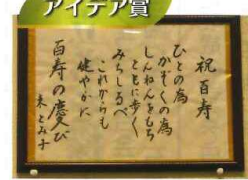 アイデア賞
祝百寿
ひとの為
かぞくの為
しんねんをもち
ともに歩く
みちしるべ
これからも
健やかに
百寿の慶び